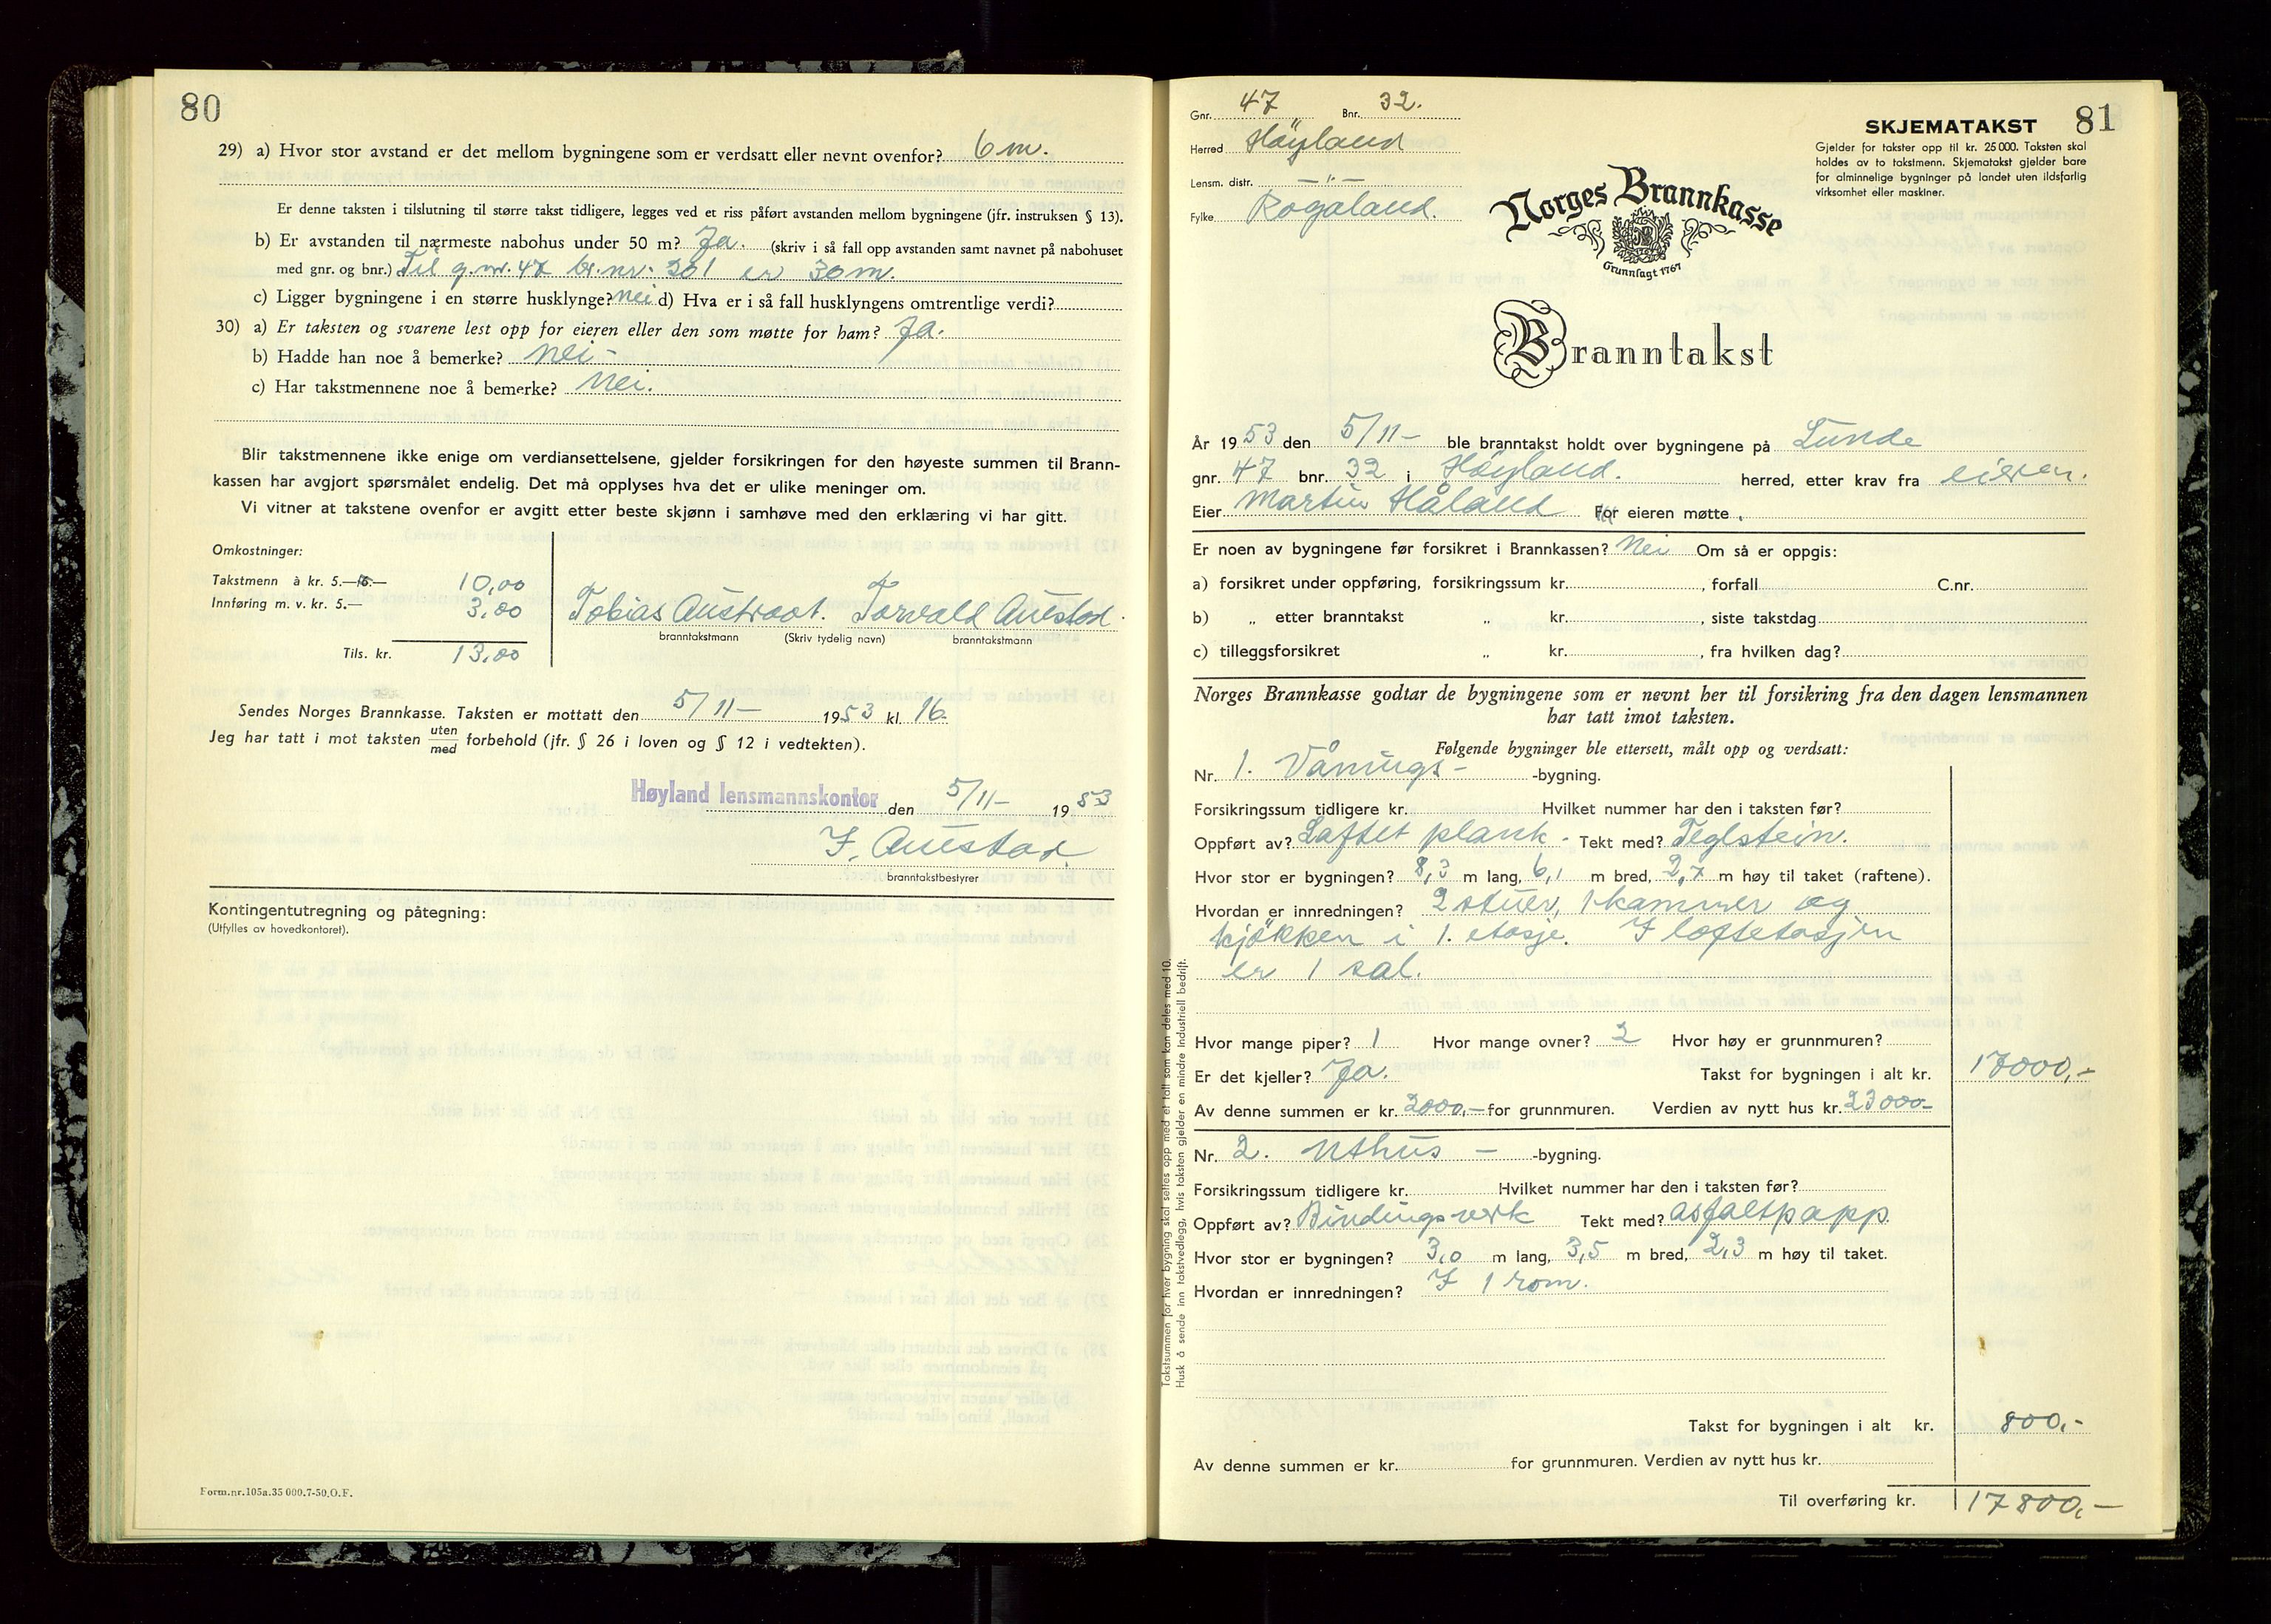 80
29) a) Hvor stor avstand er det mellom bygningene som er verdsatt eller nevnt ovenfor? 6 m.
Er denne taksten i tilslutning til større takst tidligere, legges ved et riss påført avstanden mellom bygningene (jfr. instruksen § 13).
b) Er avstanden til nærmeste nabohus under 50 m? Ja. (skriv i så fall opp avstanden samt navnet på nabohuset
med gnr. og bnr.) Til g.nr. 47 br.nr. 201 er 30 m.
c) Ligger bygningene i en større husklynge? nei d) Hva er i så fall husklyngens omtrentlige verdi?
30) a) Er taksten og svarene lest opp for eieren eller den som møtte for ham? Ja.
b) Hadde han noe å bemerke? nei -
c) Har takstmennene noe å bemerke? nei.
Blir takstmennene ikke enige om verdiansettelsene, gjelder forsikringen for den høyeste summen til Brann-
kassen har avgjort spørsmålet endelig. Det må opplyses hva det er ulike meninger om.
Vi vitner at takstene ovenfor er avgitt etter beste skjønn i samhøve med den erklæring vi har gitt.
Omkostninger:
Takstmenn à kr. 5.— 10,00
Innføring m. v. kr. 5.— 3,00
Tils. kr. 13,00
Tobias Austraat. Torvald Austad.
branntakstmann (Skriv tydelig navn) branntakstmann
Sendes Norges Brannkasse. Taksten er mottatt den 5/11 - 1953 kl. 16.
Jeg har tatt i mot taksten uten/med forbehold (jfr. § 26 i loven og § 12 i vedtekten).
Høyland lensmannskontor den 5/11 - 1953
T. Austad
branntakstbestyrer
Kontingentutregning og påtegning:
(Utfylles av hovedkontoret).
Form.nr.105a.35 000.7-50.O.F.
81
Gnr. 47 Bnr. 32.
Herred Höyland
Lensm. distr. — " —
Fylke Rogaland.
SKJEMATAKST
Gjelder for takster opp til kr. 25 000. Taksten skal
holdes av to takstmenn. Skjematakst gjelder bare
for alminnelige bygninger på landet uten ildsfarlig
virksomhet eller maskiner.
Norges Brannkasse
Grunnlagt 1767
Branntakst
År 1953 den 5/11 - ble branntakst holdt over bygningene på Lunde
gnr. 47 bnr. 32 i Höyland. herred, etter krav fra eieren.
Eier Martin Håland For eieren møtte
Er noen av bygningene før forsikret i Brannkassen? Nei Om så er oppgis:
a) forsikret under oppføring, forsikringssum kr. , forfall C.nr.
b) „ etter branntakst „ kr. , siste takstdag
c) tilleggsforsikret „ kr. , fra hvilken dag?
Norges Brannkasse godtar de bygningene som er nevnt her til forsikring fra den dagen lensmannen
har tatt imot taksten.
Følgende bygninger ble ettersett, målt opp og verdsatt:
Nr. 1. Vånings- -bygning.
Forsikringssum tidligere kr. Hvilket nummer har den i taksten før?
Oppført av? Laftet plank - Tekt med? Teglstein.
Hvor stor er bygningen? 8,3 m lang, 6,1 m bred, 2,7 m høy til taket (raftene).
Hvordan er innredningen? 2 stuer, 1 kammer og
kjökken i 1. etasje. I loftetasjen
er 1 sal.
Hvor mange piper? 1 Hvor mange ovner? 2 Hvor høy er grunnmuren?
Er det kjeller? Ja. Takst for bygningen i alt kr. 17000,-
Av denne summen er kr. 2000,- for grunnmuren. Verdien av nytt hus kr. 23000-
Nr. 2. Uthus - -bygning.
Forsikringssum tidligere kr. Hvilket nummer har den i taksten før?
Oppført av? Bindingsverk Tekt med? asfaltpapp
Hvor stor er bygningen? 3,0 m lang, 3,5 m bred, 2,3 m høy til taket.
Hvordan er innredningen? I 1 rom.
Takst for bygningen i alt kr. 800,-
Av denne summen er kr. for grunnmuren. Verdien av nytt hus kr.
Til overføring kr. 17800,-
Takstsummen for hver bygning skal settes opp med et tall som kan deles med 10.
Husk å sende inn takstvedlegg, hvis taksten gjelder en mindre industriell bedrift.